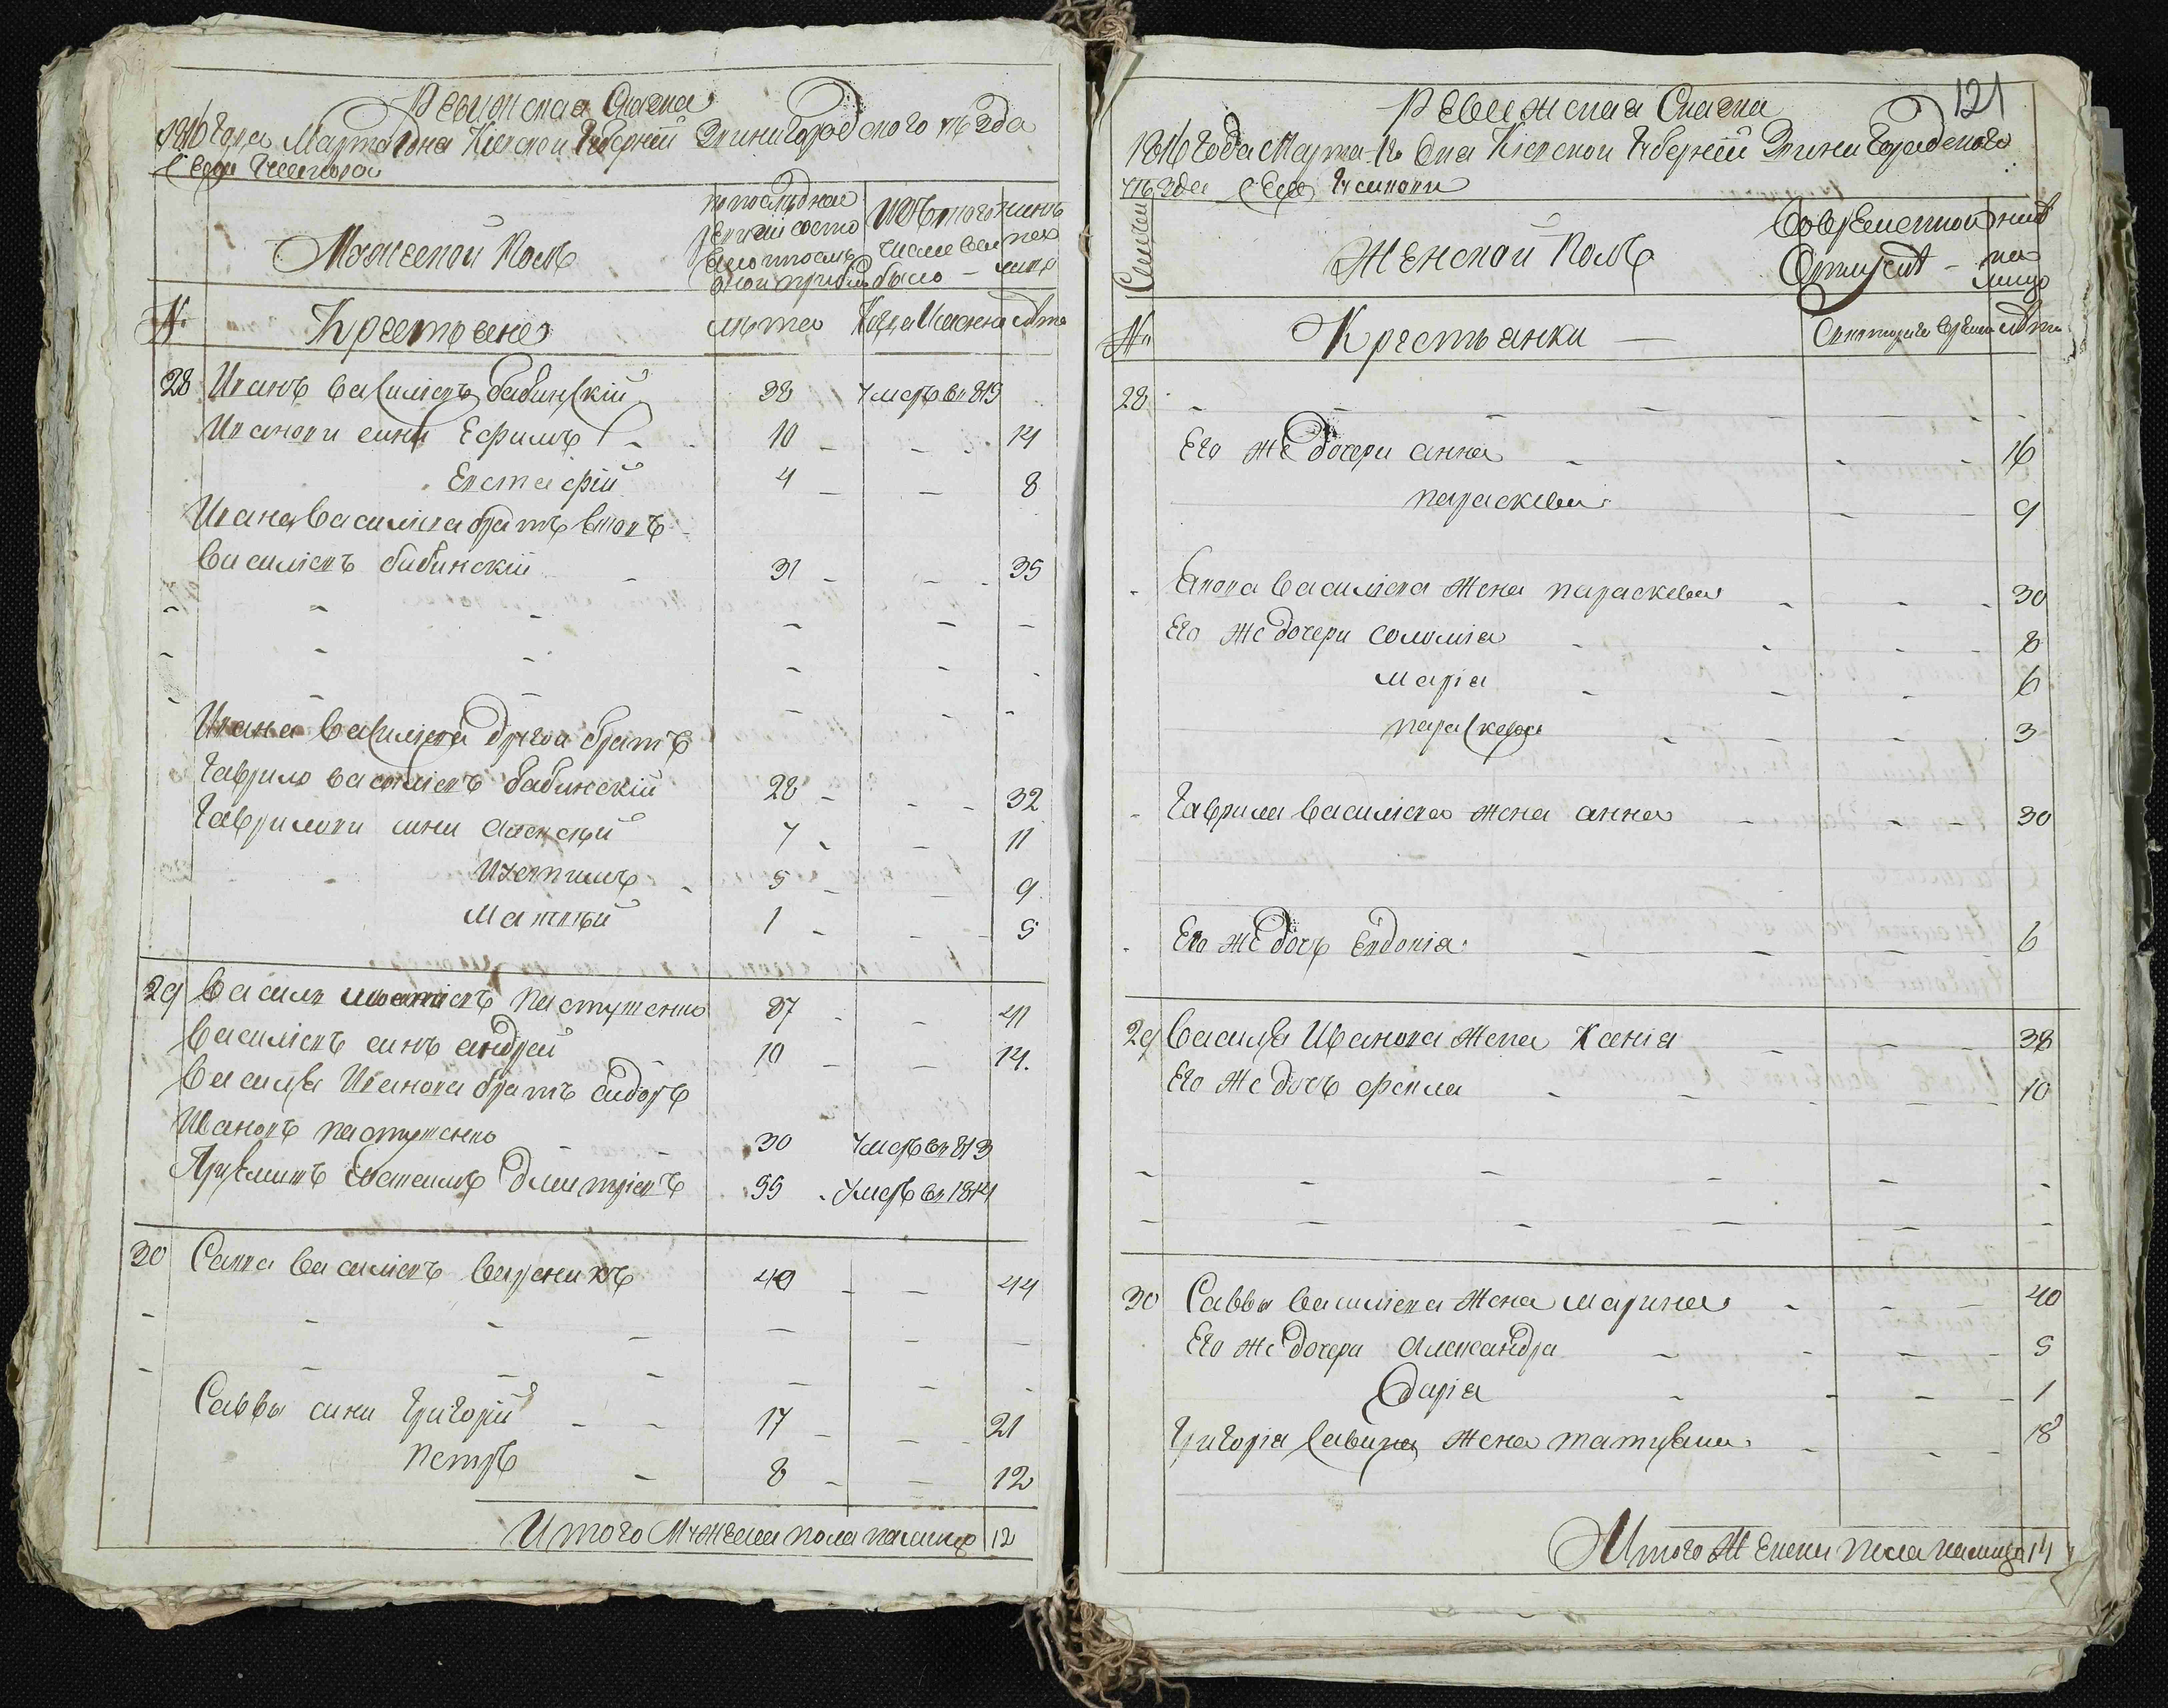 Ревижская Сказка
1816 Года Марта дня Киевской Губернии Звинигородского уезда
Села
Мужеской Полъ
по последней ревизии состояло и после оной прибыло
Изъ того числа выбыло
ныне на лицо
№
Крестьяне
лета
Когда Именно
лета
28 Иванъ Василіевъ бабинскій 38 Умеръ въ 815
Ивановы сини Ефимъ 10 14
Евстафій 4 8
Ивана Василіева братъ
Василіевъ бабинскій 31 35
Ивана Василіева другой братъ
Гаврило Василіевъ бабинскій 28 32
Гавриловы сини Алексій 7 11
5 9
Матвій 1 5
29 Василь Ивановъ Пастушенко 37 41
Василіевъ синъ андрей 10 14
Василія Иванова братъ сидоръ
Ивановъ пастушенко 30 Умеръ въ 813
Дмитріевъ 55 Умеръ въ 1814
30 Савва Василіевъ 40 44
Саввы сини Григорій 17 21
Петръ 8 12
Итого Мужеска пола налицо 12
121
Ревижская Сказка
1816 Года Марта дня Киевской Губерніи Звини Городского
уезда Села
Семьи
Женской Полъ
Во временной Отлучке
ныне на лицо
№
Крестьянки
Скоторого времени
лета
28
Его же дочери анна 16
параскева 9
Василіева жена параскева 30
Его же дочери соломіа 8
Маріа 6
параскева 3
Гаврила Василіева жена анна 30
Его же дочь Евдокіа 6
29 Василія Иванова жена Ксеніа 38
Его же дочь фекла 10
30 Саввы Василіева жена марина 40
Его же дочери Александра 5
Даріа 1
Григоріа Савина жена татіана 18
Итого Женска пола налицо 14